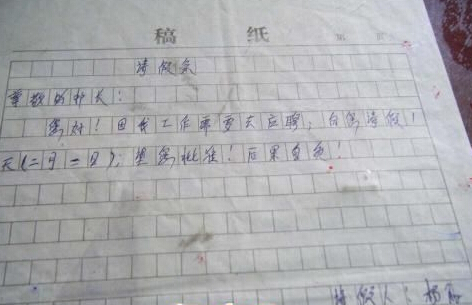 稿 纸 第 页
请假条
尊敬的护长：
您好！因我工作需要去应聘；向您请假1
天(二月一日)；望您批准！后果自负！
请假人：杨